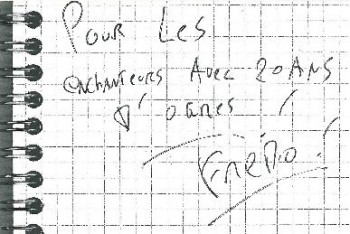 Pour Les
enchanteurs Avec 20 ANS
d'ogres !
Frédo !